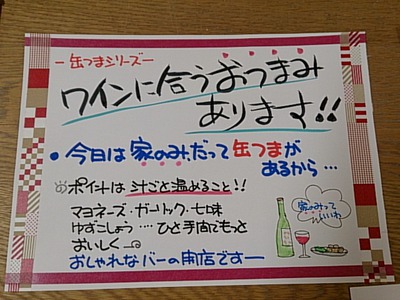 －缶つまシリーズ－
ワインに合うおつまみ
あります!!
●今日は家のみだって缶つまが
あるから…
ポイントは汁ごと温めること!!
マヨネーズ・ガーリック・七味
ゆずこしょう…ひと手間でもっと
おいしく
おしゃれなバーの開店ですー
家のみって
いいわ